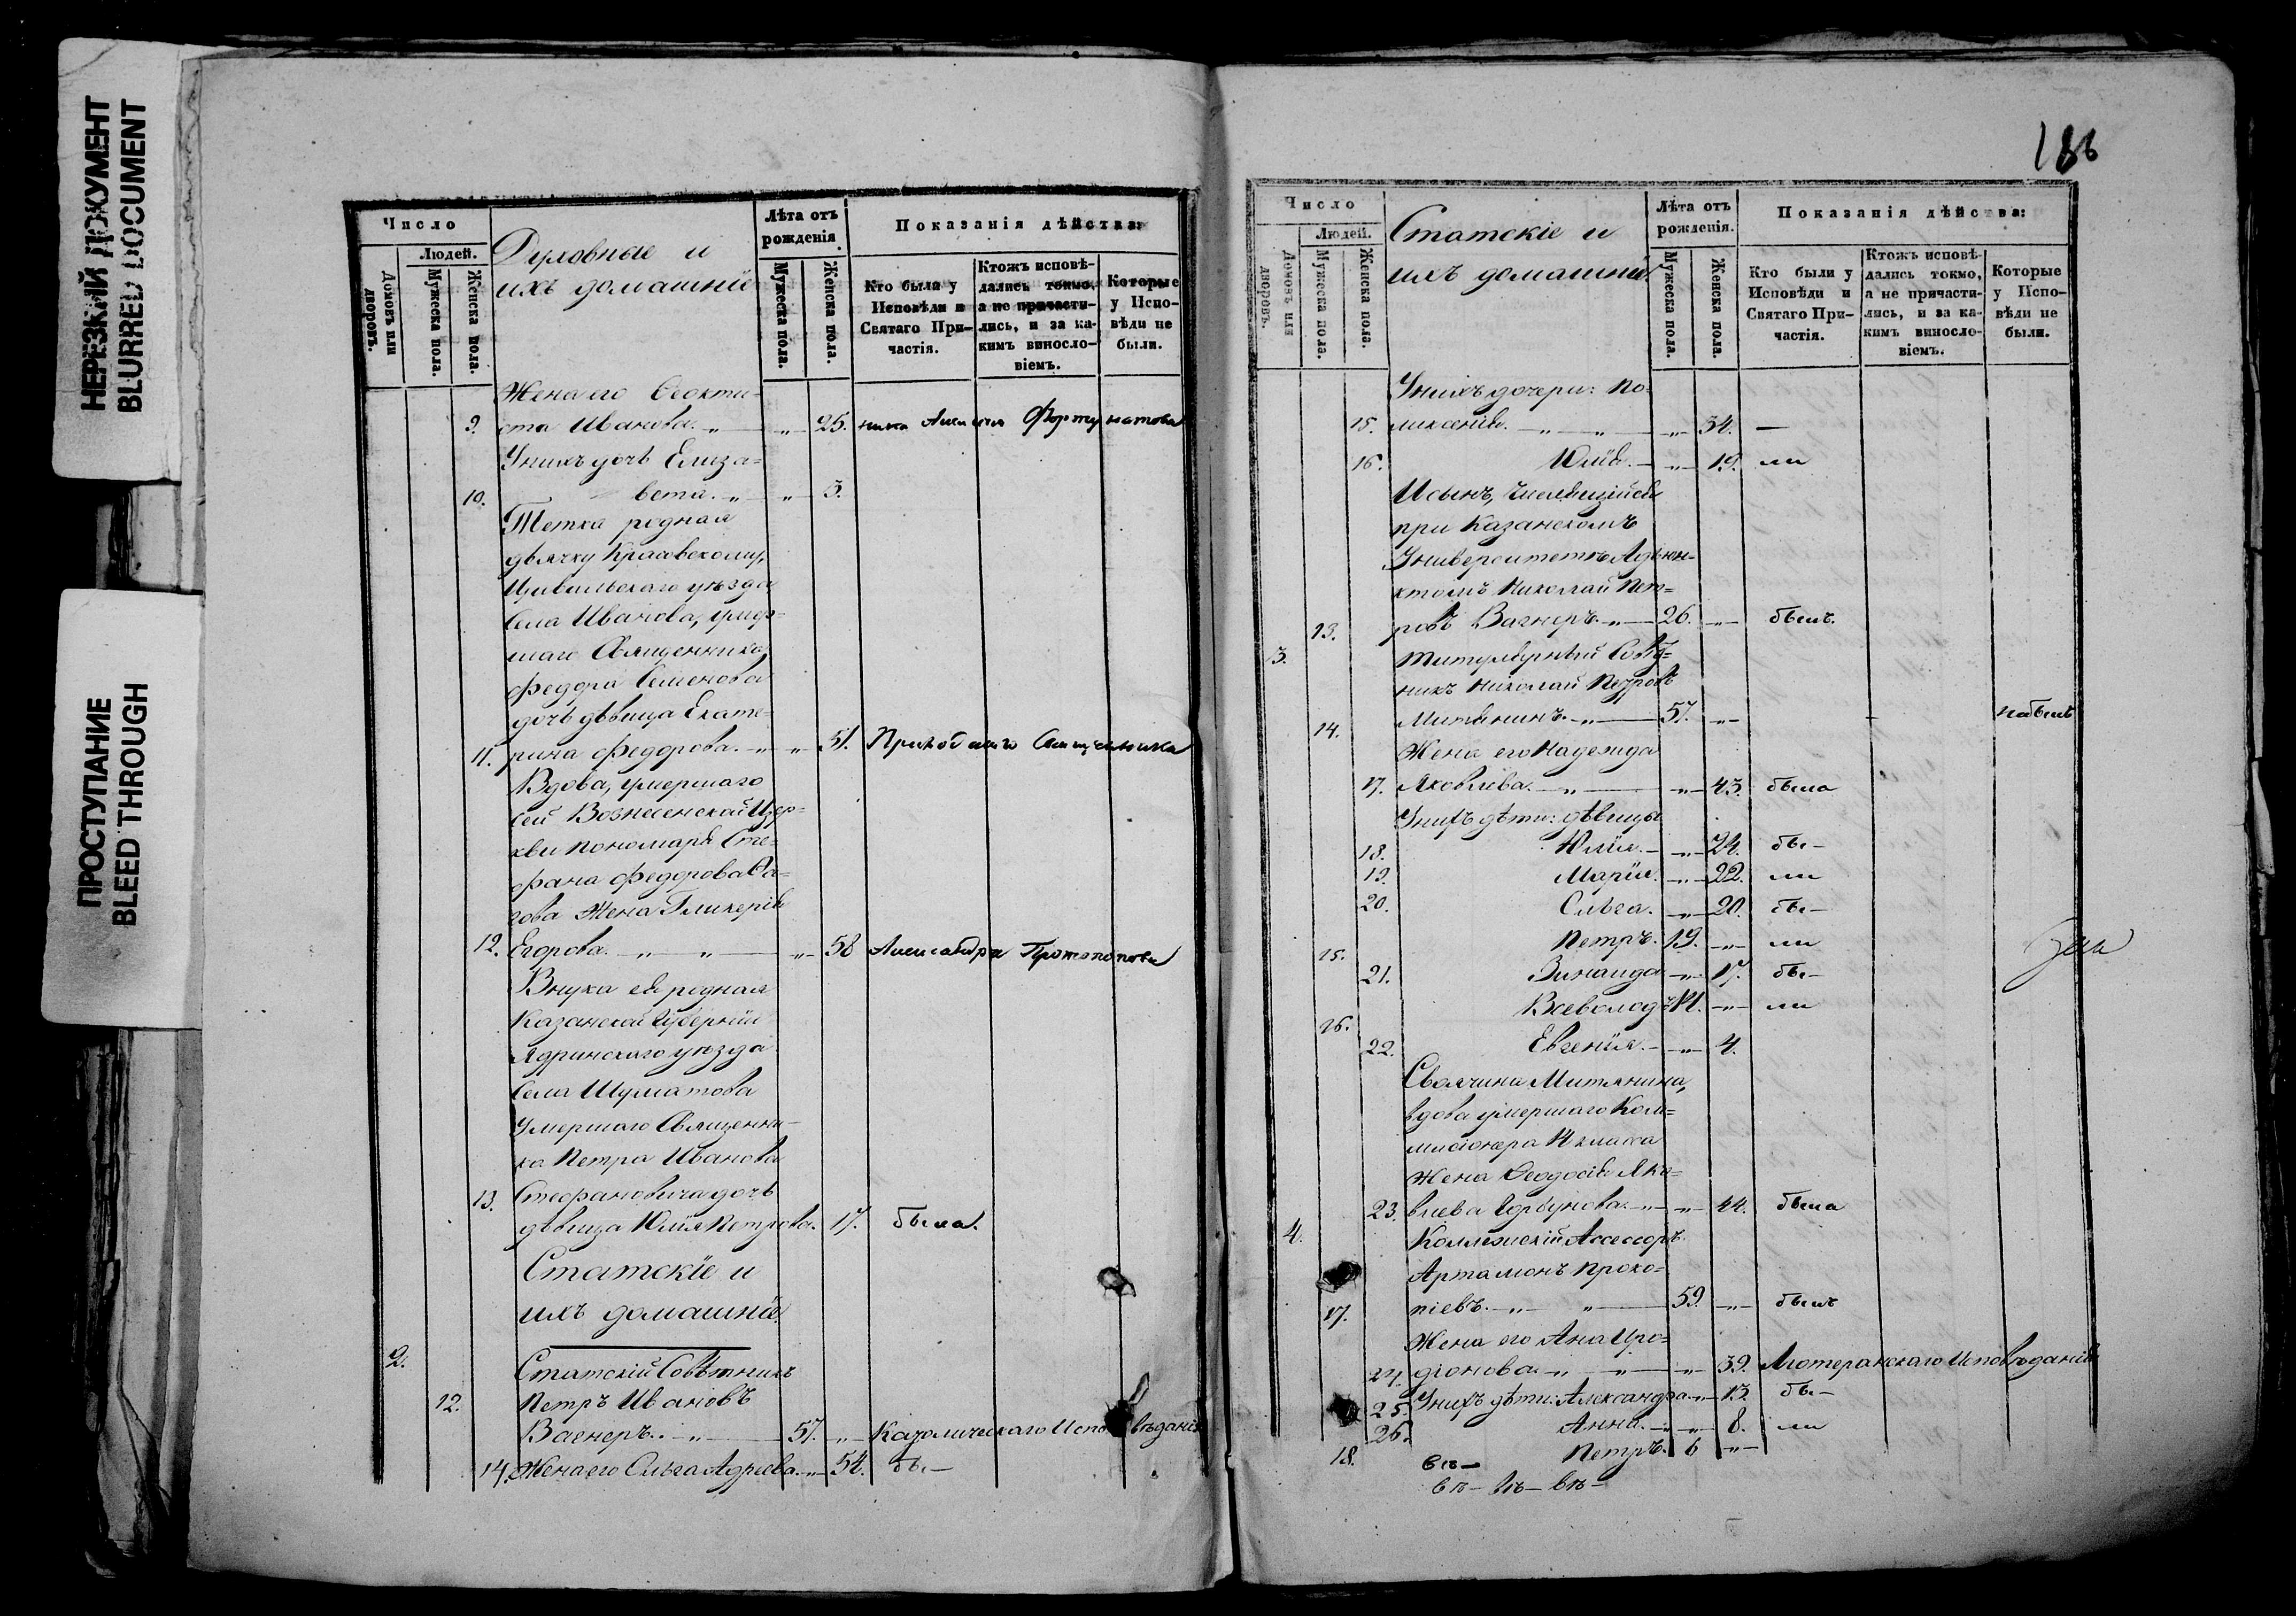 НЕРЕЗКИЙ ДОКУМЕНТ
BLURRED DOCUMENT
ПРОСТУПАНИЕ
BLEED THROUGH
Число
Людей.
Домовъ или дворовъ.
Мужеска пола.
Женска пола.
Духовные и
ихъ домашніе
Лѣта отъ рожденія
Мужеска пола.
Женска пола.
Показанія дѣйства:
Кто были у Исповѣди и Святаго Причастія.
Ктожъ исповѣдались токмо, а не причастились, и за какимъ винословіемъ.
Которые у Исповѣди не были.
Жена его Ѳеокти-
9. ста Иванова. „ „ 25.
Унихъ дочь Елиза=
10. вета. „ „ 3.
Тетка родная
дьячку
Цивильскаго уѣзда
Села Иванова, умер-
шаго Священника
Федора Семенова
дочь дѣвица Екате-
11. рина Федорова. „ „ 51. Приходскаго Священника
Вдова, умершаго
сей Вознесенской Цер-
кви пономаря Сте-
фана Федорова
жена Гликерія
12. Егорова. „ „ „ 58 Александра Протопопова
Внука ея родная
Казанской Губерніи
Ядринскаго уѣзда
Села Шуматова
Умершаго Священни-
ка Петра Иванова
13. Стефановича дочь
дѣвица Юлія Петрова. 17. была.
Статскіе и
ихъ домашніе
2. Статскій Совѣтникъ
12. Петръ Ивановъ
Вагнеръ. „ 57. „ Католическаго Исповѣданія
14. Жена его Ольга Адреева. „ 54. бы—
186
Число
Людей.
Домовъ или дворовъ.
Мужеска пола.
Женска пола.
Статскіе и
ихъ домашніе
Лѣта отъ рожденія.
Мужеска пола.
Женска пола.
Показанія дѣйства:
Кто были у Исповѣди и Святаго Причастія.
Ктожъ исповѣдались токмо, а не причастились, и за какимъ винословіемъ.
Которые у Исповѣди не были.
Унихъ дочери: По-
15. ликсенія. „ „ „ 34. —
16. Юлія. „ 19. ли
И сынъ, числящійся
при Казанскомъ
Университетѣ Адъюн-
ктомъ Николай Пет-
13. ровъ Вагнеръ. „ 26. „ былъ.
3. Титулярный Совѣт=
никъ Николай Петровъ
14. Митянинъ. „ 57. „ не былъ
Жена его Надежда
17. Яковлева. „ „ 43. была
Унихъ дѣти: дѣвицы
18. Юлія. „ 24. бы—
19. Марія. „ 22. ли
20. Ольга. „ 20. бы—
15. Петръ. 19. „ ли
21. Зинаида „ 17. бы—
16. Всеволодъ 11. „ ли
22. Евгенія. „ 4.
Своячина Митянина,
вдова умершаго Ком=
мисіонера класса
Жена Ѳеодосія Яко=
23. влева Горбунова. „ „ 44. была
4. Коллежскій Ассесоръ
Артамонъ Проко=
17. піевъ. „ „ 59. „ былъ
Жена его Ана Иро=
24. діонова. „ „ „ 39. Лютеранскаго Исповѣданія
25. Унихъ дѣти: Александра „ 13. бы—
26. Анна. „ „ 8. ли
18. Петръ. 6 „